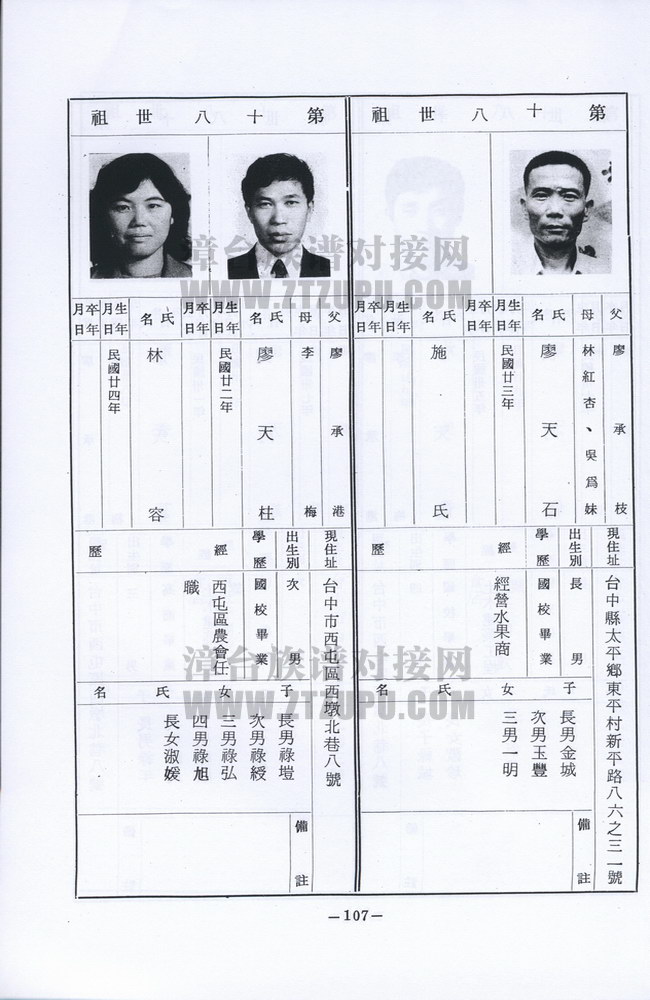 第十八世祖
父 廖承枝
母 林紅杏、吳爲妹
氏名 廖天石
生年月日 民國廿三年
卒年月日
氏名 施氏
生年月日
卒年月日
現住址 台中縣太平鄉東平村新平路八六之三一號
出生別 長男
學歷 國校畢業
經歷 經營水果商
子女氏名
長男金城
次男玉豐
三男一明
備註
第十八世祖
父 廖承港
母 李梅
氏名 廖天柱
生年月日 民國廿二年
卒年月日
氏名 林容
生年月日 民國廿四年
卒年月日
現住址 台中市西屯區西墩北巷八號
出生別 次男
學歷 國校畢業
經歷 西屯區農會任職
子女氏名
長男祿塏
次男祿綬
三男祿弘
四男祿旭
長女淑媛
備註
漳台族谱对接网
WWW.ZTZUPU.COM
漳台族谱对接网
WWW.ZTZUPU.COM
—107—